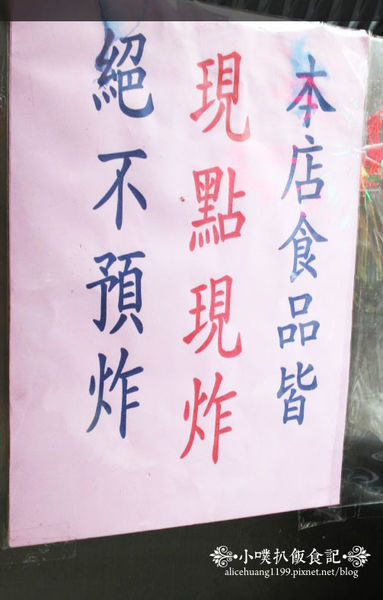 本店食品皆
現點現炸
絕不預炸
小噗扒飯食記
alicehuang1199.pixnet.net/blog